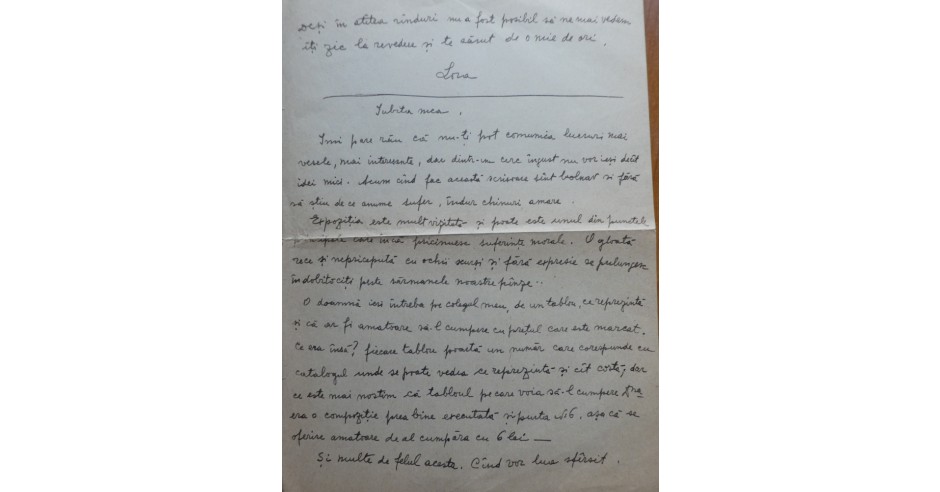 Deși în atîtea rînduri nu a fost posibil să ne mai vedem
îți zic la revedere și te sărut de o mie de ori.
Iubita mea,
Îmi pare rău că nu-ți pot comunica lucruri mai
vesele, mai interesante, dar dintr-un cerc îngust nu vor ieși decît
idei mici. Acum cînd fac această scrisoare sînt bolnav și fără
să știu de ce anume sufer, îndur chinuri amare.
Expoziția este mult vizitată și poate este unul din punctele
care încă pricinuesc suferințe morale. O gloată
rece și nepricepută cu ochii scurși și fără expresie se prelungesc
îndobitociți peste sărmanele noastre pînze..
O doamnă ieri întreba pe colegul meu, de un tablou, ce reprezintă
și că ar fi amatoare să-l cumpere cu prețul care este marcat.
Ce era însă? fiecare tablou poartă un număr care corespunde cu
catalogul unde se poate vedea ce reprezintă și cît costă, dar
ce este mai nostim că tabloul pe care voia să-l cumpere D-na
era o compoziție prea bine executată și purta № 6, așa că se
oferise amatoare de al cumpăra cu 6 lei —
Și multe de felul acesta. Cînd vor lua sfîrșit.